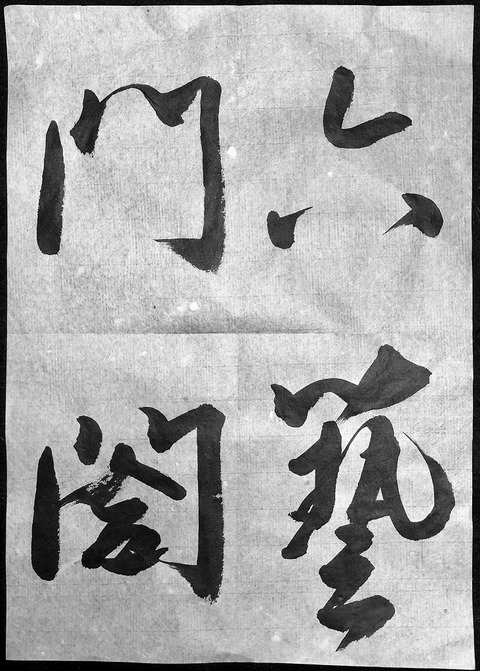 六藝
門閣